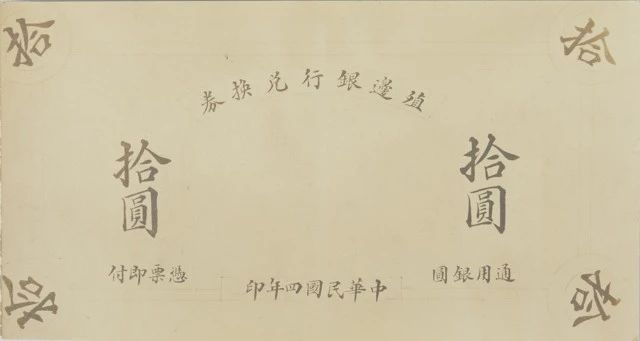 殖邊銀行兌換券
拾
拾
拾圓
拾圓
通用銀圓
憑票即付
中華民國四年印
拾
拾